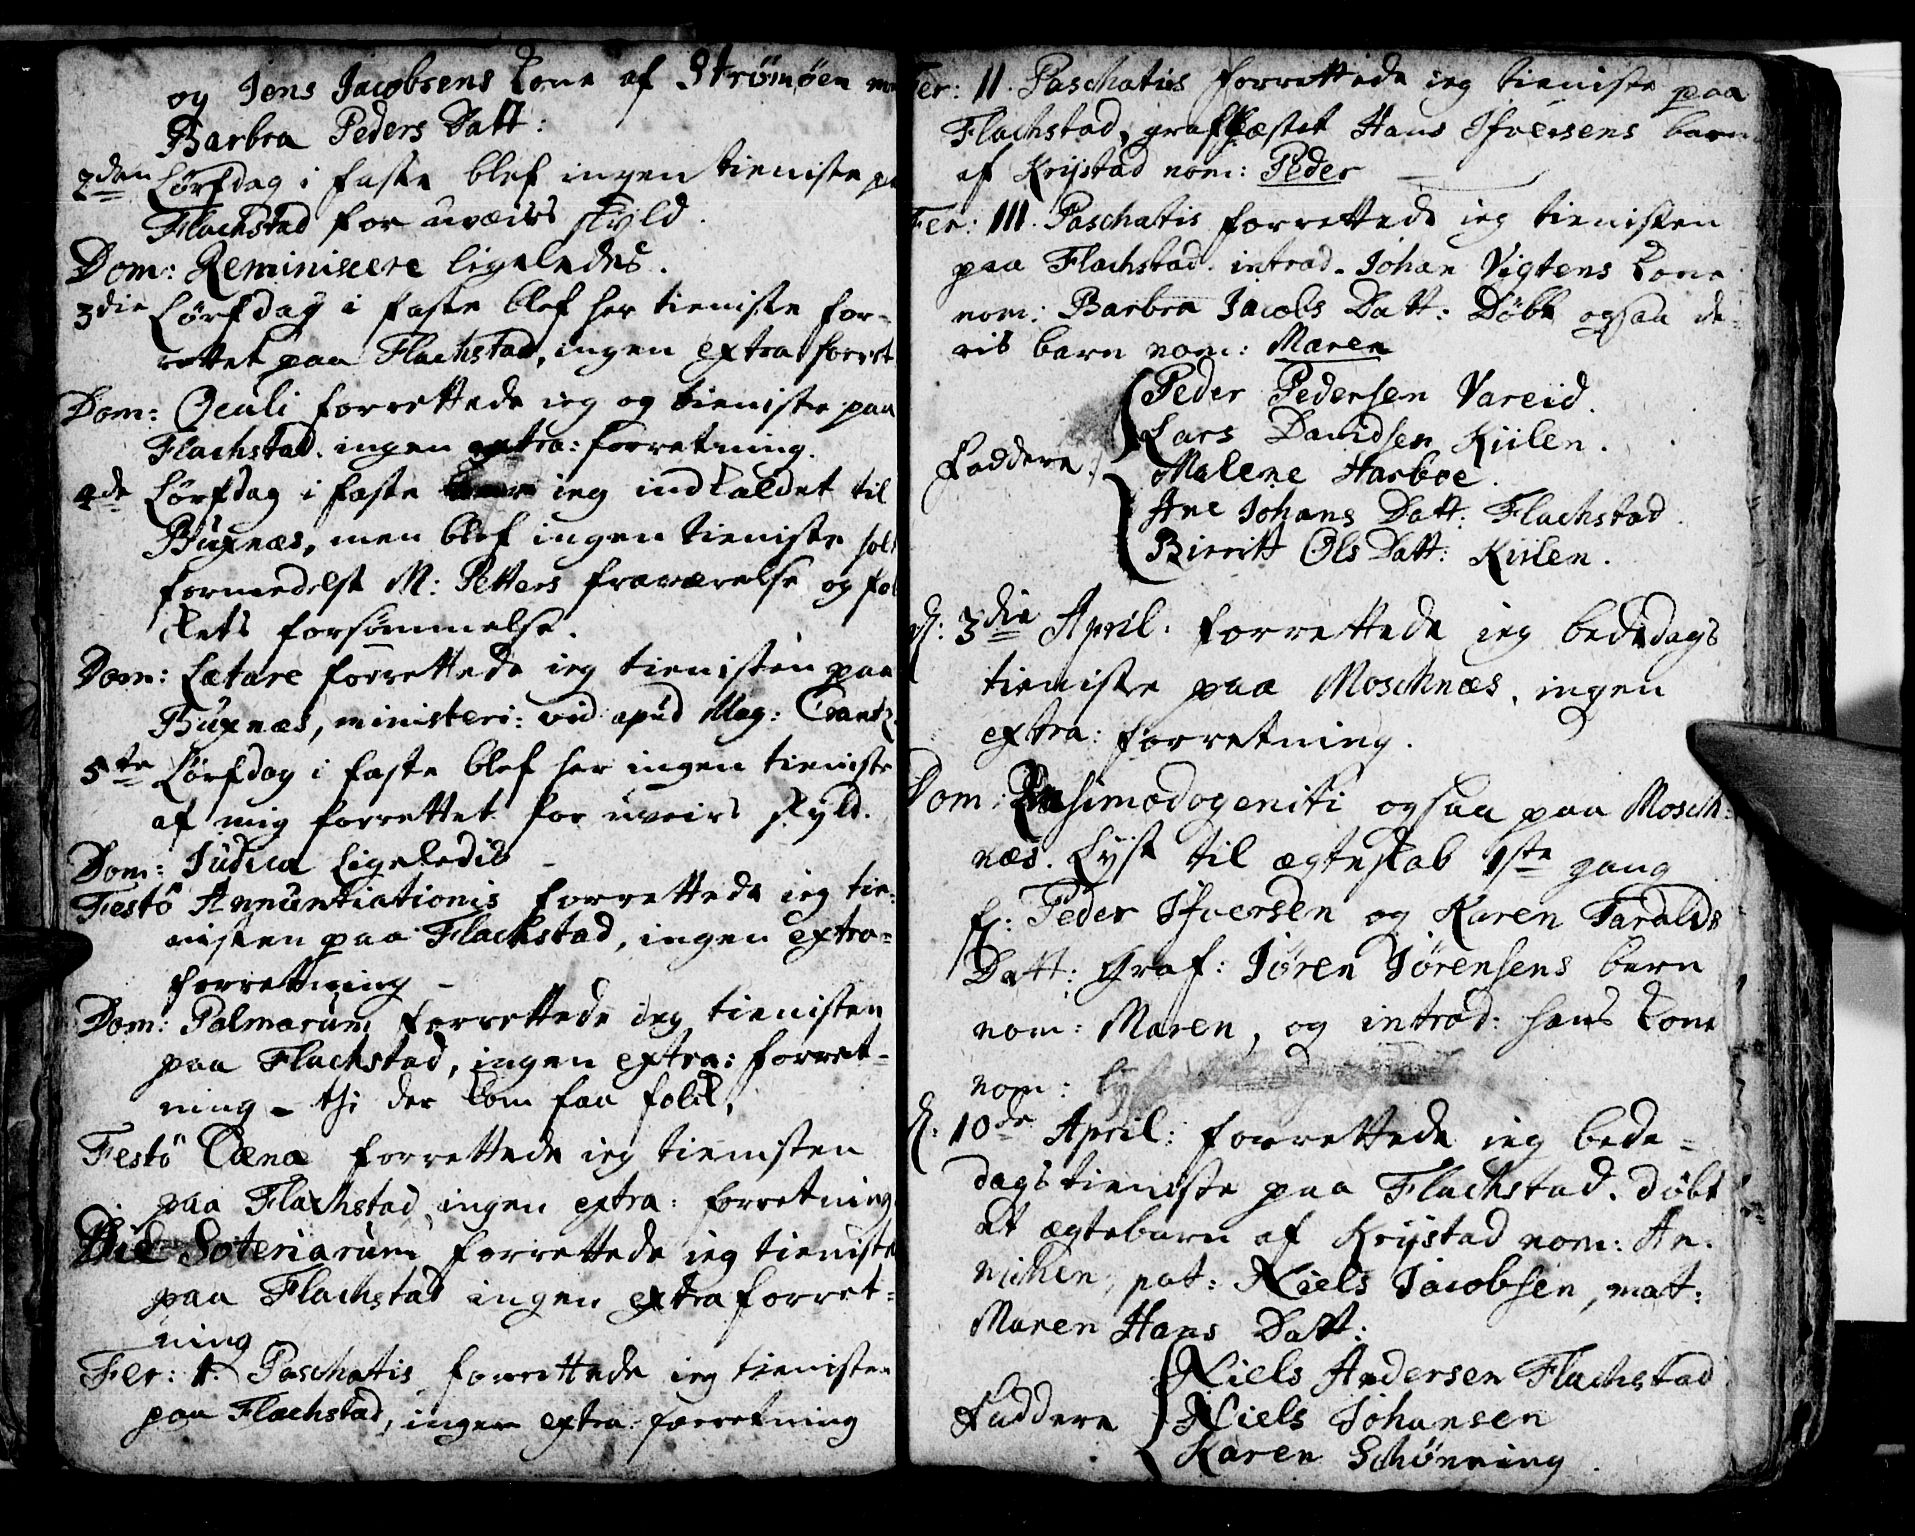 og Jens Jacobsens Kone af Strømøen
Barbra Peders Datt:
2den Lørsdag i faste blef ingen tieniste
Flachstad for uveirs skyld.
Dom: Reminiscere ligeledes.
3die Lørsdag i faste blef her tieniste for-
rettet paa Flachstad, ingen extra forret
Dom: Oculi forrettede ieg og tieniste paa
Flachstad. ingen extra: forretning.
4de Lørsdag i faste ieg indkaldet til
Buxnæs, men blef ingen tieniste hol
formedelst M: Petters fraværelse og fol
kets forsømmelse.
Dom: Lætare forrettede ieg tienisten paa
Buxnæs, ministeri: vid apud Mag: Crantz
5te Lørsdag i faste blef her ingen tieniste
af mig forrettet for uveirs skyld.
Dom: Judica Ligeledis –
Festô Annuntiationis forrettede ieg tie:
nisten paa Flachstad, ingen extra=
forretning –
Dom: Palmarum forrettede ieg tienisten
paa Flachstad, ingen extra: forret-
ning – thi der kom faa folck,
Festô Cæna forrettede ieg tienisten
paa Flachstad ingen extra: forretning
Die Soteriarum forrettede ieg tieniste
paa Flachstad ingen extra forret=
ning
Fer: 1. Paschatis forrettede ieg tienisten
paa Flachstad, ingen extra forretning
Fer: II. Paschatis forrettede ieg tieniste paa
Flachstad, graffæstet Hans Ifversens barn
af Krijstad nom: Peder –
Fer: III. Paschatis forrettede ieg tienisten
paa Flachstad. introd. Johan Vigtens Kone
nom: Barbra Jacobs Datt: Døbt ogsaa de-
ris barn nom: Maren
Peder Pedersen Vareid.
Lars Davidsen Kiilen.
Faddere: Malene Harboe.
Ane Johans Datt: Flachstad.
Birritt Ols Datt: Kiilen.
d: 3die April. forrettede ieg bededags
tieniste paa Moschnæs, ingen
extra: forretning.
Dom: Qvasimodogeniti ogsaa paa Mosch-
næs. Lyst til ægteskab 1ste gang
f: Peder Ifversen og Karen Taralds
Datt: Graf: Jøren Jørensens bern
nom: Maren, og introd: hans kone
nom:
d. 10de April: forrettede ieg bede=
dags tieniste paa Flachstad. døbt
et ægtebarn af Krijstad nom: An-
nichen, pat: Niels Jacobsen, mat:
Maren Hans Datt:
Niels Andersen Flachstad
Faddere Niels Johansen
Karen Schønning.